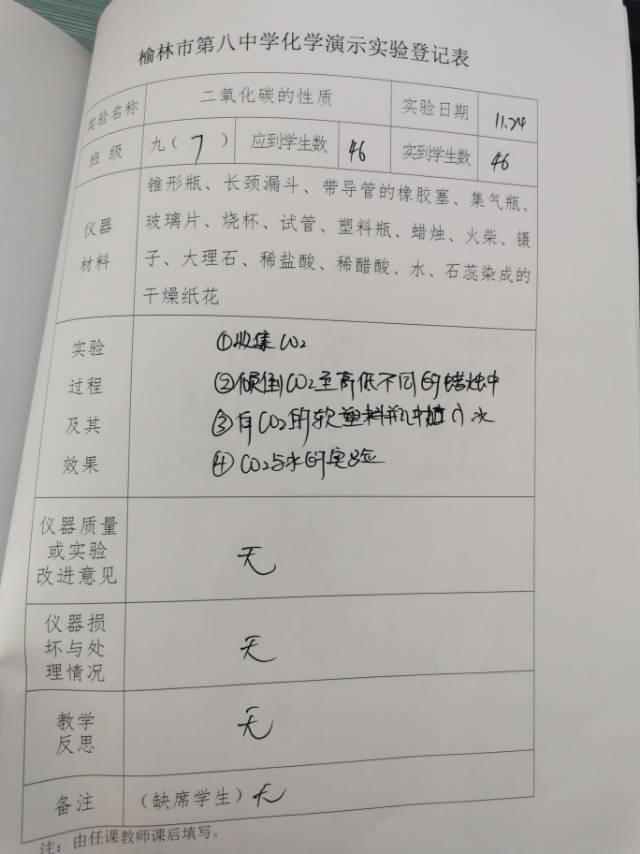 榆林市第八中学化学演示实验登记表
实验名称 二氧化碳的性质 实验日期 11.24
班级 九(7) 应到学生数 46 实到学生数 46
仪器
材料
锥形瓶、长颈漏斗、带导管的橡胶塞、集气瓶、
玻璃片、烧杯、试管、塑料瓶、蜡烛、火柴、镊
子、大理石、稀盐酸、稀醋酸、水、石蕊染成的
干燥纸花
实验
过程
及其
效果
①收集CO2
②倾倒CO2至高低不同的蜡烛中
③向CO2的软塑料瓶中加水
④CO2与水的实验
仪器质量
或实验
改进意见
无
仪器损
坏与处
理情况
无
教学
反思
无
备注 (缺席学生)无
注:由任课教师课后填写。